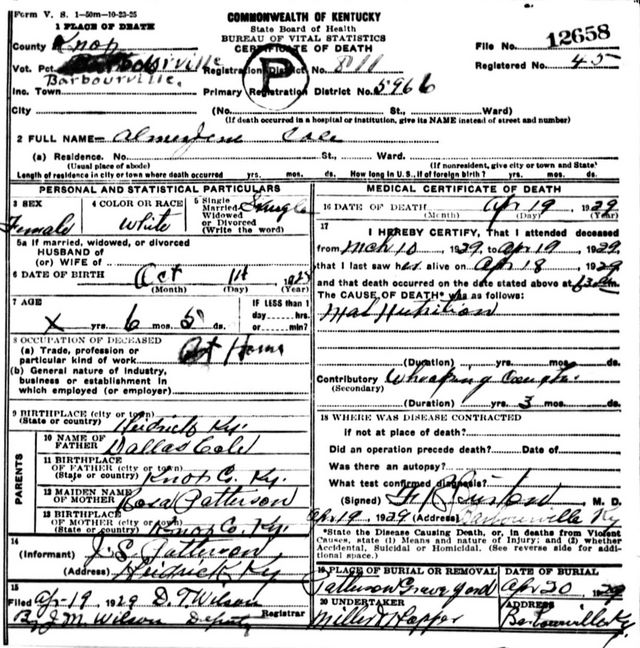 Form V. S. 1-50m-10-23-25
COMMONWEALTH OF KENTUCKY
State Board of Health
BUREAU OF VITAL STATISTICS
CERTIFICATE OF DEATH
1 PLACE OF DEATH
County Knox
File No. 12658
Vot. Pct.
Barbourville.
Registration District No. 811
Registered No. 45
P
Inc. Town
Primary Registration District No. 5966
City (No. St., Ward)
(If death occurred in a hospital or institution, give its NAME instead of street and number)
2 FULL NAME Cole
(a) Residence. No. St., Ward.
(Usual place of abode) (If nonresident, give city or town and State)
Length of residence in city or town where death occurred yrs. mos. ds. How long in U. S., if of foreign birth? yrs. mos. ds.
PERSONAL AND STATISTICAL PARTICULARS
3 SEX
Female
4 COLOR OR RACE
White
5 Single Single
Married
Widowed
or Divorced
(Write the word)
5a If married, widowed, or divorced
HUSBAND of
(or) WIFE of
6 DATE OF BIRTH Oct 192
(Month) (Day) (Year)
7 AGE
x yrs. 6 mos. 5 ds.
IF LESS than 1
day hrs.
or min.?
8 OCCUPATION OF DECEASED
(a) Trade, profession or
particular kind of work At Home
(b) General nature of Industry,
business or establishment in
which employed (or employer)
9 BIRTHPLACE (city or town)
(State or country) Heidrick Ky.
PARENTS
10 NAME OF
FATHER Dallas Cole
11 BIRTHPLACE
OF FATHER (city or town)
(State or country) Knox Co. Ky.
12 MAIDEN NAME
OF MOTHER Rosa Patterson
13 BIRTHPLACE
OF MOTHER (city or town)
(State or country) Knox Co. Ky.
14
(Informant) J. S. Patterson
(Address) Heidrick Ky
15
Filed Apr-19 1929 D. T. Wilson
Registrar
By J. M. Wilson Deputy
MEDICAL CERTIFICATE OF DEATH
16 DATE OF DEATH Apr 19 1929
(Month) (Day) (Year)
17
I HEREBY CERTIFY, That I attended deceased
from Mch 10 1929, to Apr 19 1929,
that I last saw her alive on Apr 18 1929
and that death occurred on the date stated above at m.
The CAUSE OF DEATH* was as follows:
Mal Nutrition
(Duration) yrs. mos. ds.
Contributory Whooping Cough
(Secondary)
(Duration) yrs. 3 mos. ds.
18 WHERE WAS DISEASE CONTRACTED
if not at place of death?
Did an operation precede death? Date of
Was there an autopsy?
What test confirmed diagnosis?
(Signed) M. D.
Apr 19, 1929 (Address) Barbourville Ky
*State the Disease Causing Death, or, in deaths from Violent
Causes, state (1) Means and nature of Injury; and (2) whether
Accidental, Suicidal or Homicidal. (See reverse side for addi-
tional space.)
19 PLACE OF BURIAL OR REMOVAL
Patterson Grave yard
DATE OF BURIAL
Apr 20 1929
20 UNDERTAKER
Miller & Hopper
ADDRESS
Barbourville Ky.